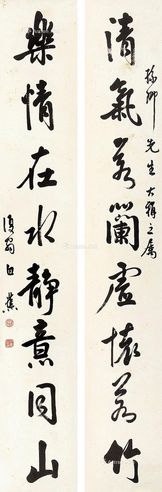 清氣若蘭虛懷若竹
樂情在水靜意同山
先生大雅之屬
復翁白蕉